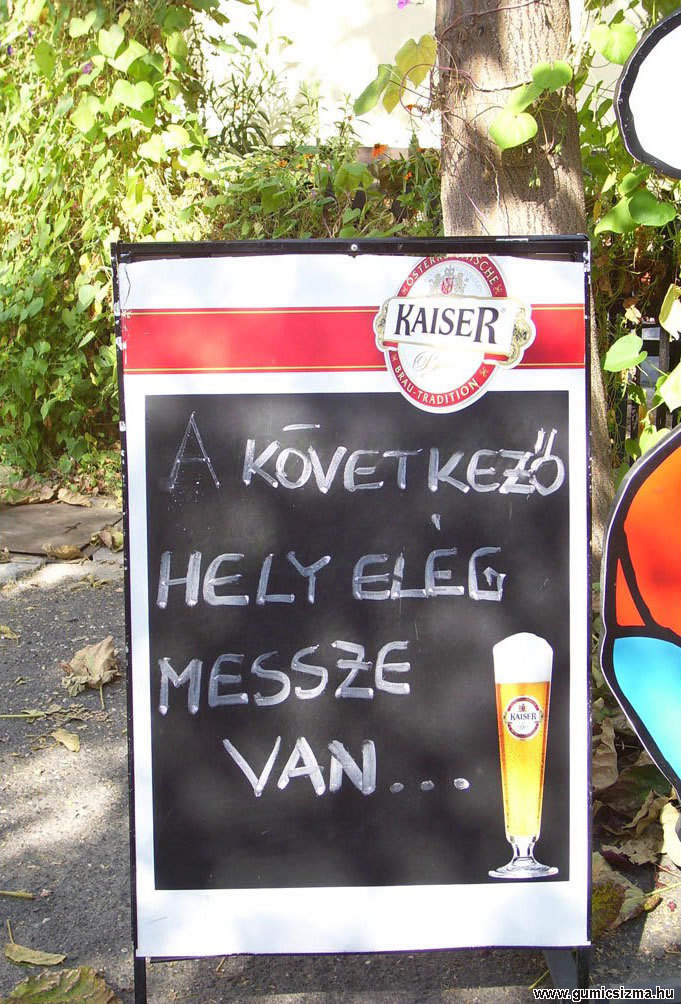 ÖSTERREICHISCHE
KAISER
Bier
BRAU-TRADITION
A KÖVETKEZŐ
HELY ELÉG
MESSZE
VAN...
KAISER
www.gumicsizma.hu